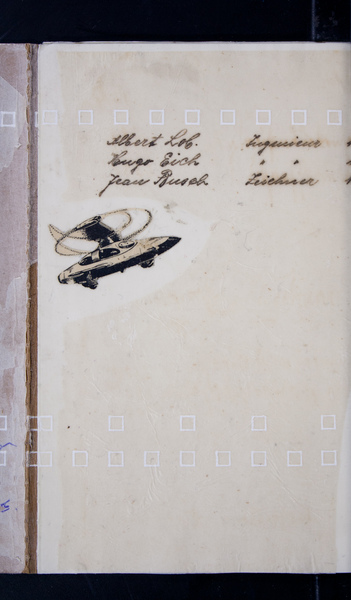 Albert Lob. Ingenieur
Hugo Eich " "
Jean Rusch Zeichner